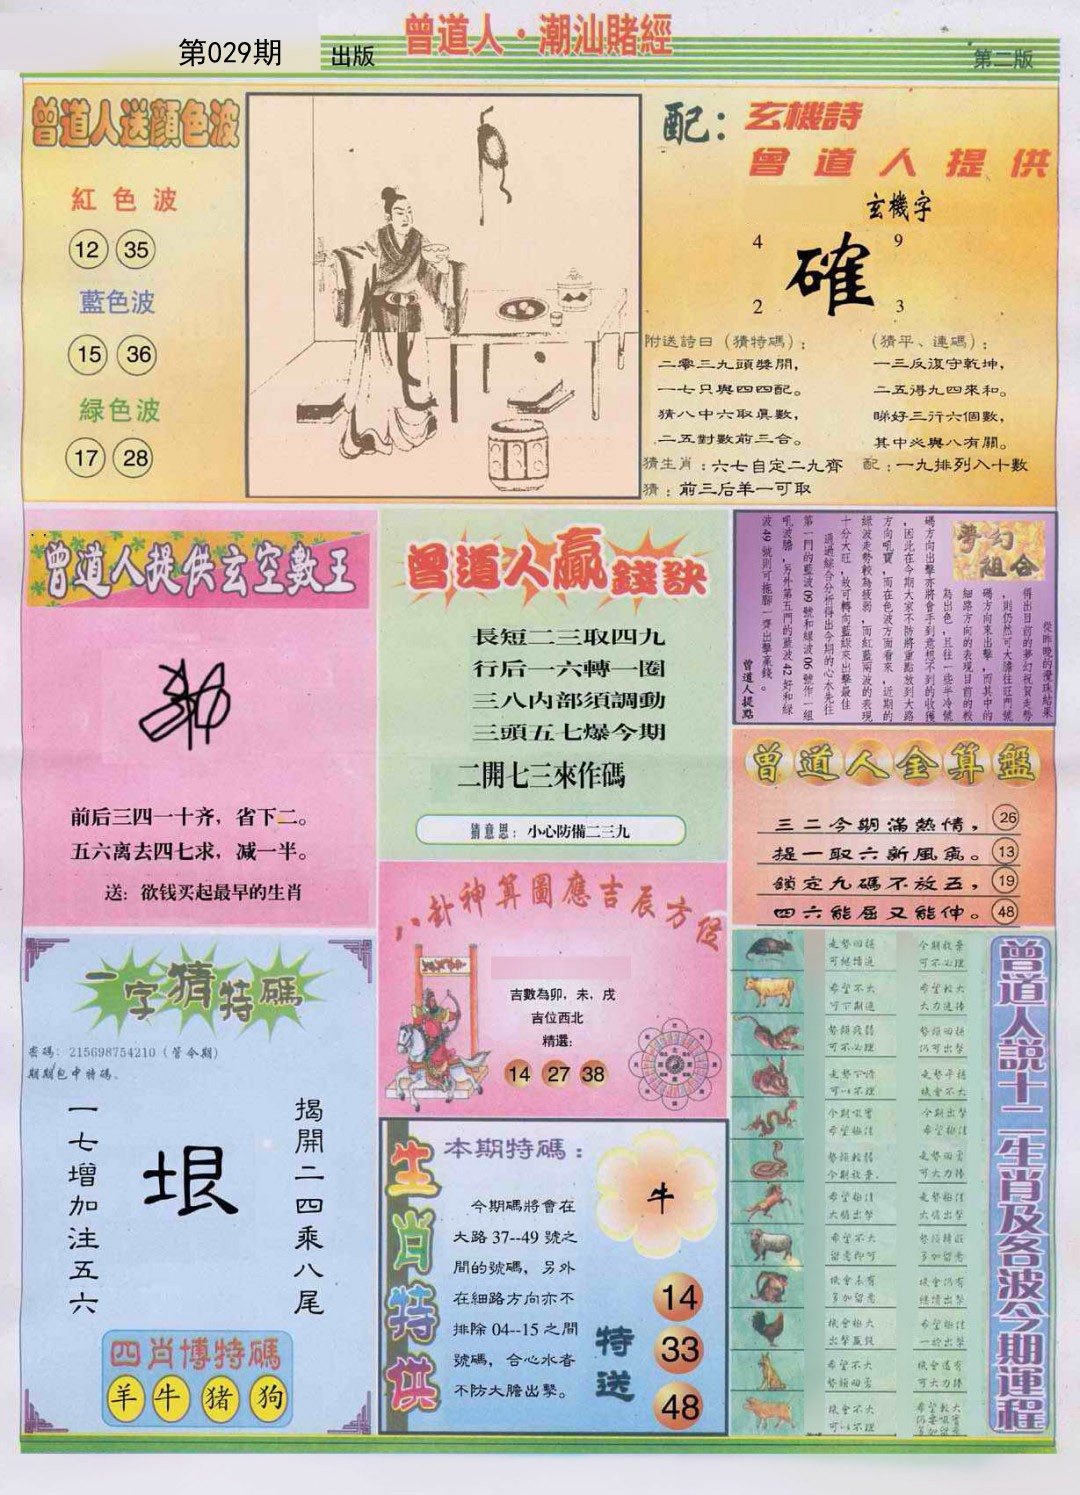 第029期
出版
曾道人·潮汕賭經
第二版
曾道人送顔色波
紅色波
12 35
藍色波
15 36
緑色波
17 28
配：玄機詩
曾道人提供
玄機字
4 9
確
2 3
附送詩曰（猜特碼）：
二零三九頭獎開，
一七只與四四配。
猜八中六取眞數，
二五對數前三合。
猜生肖：六七自定二九齊
猜：前三后羊一可取
（猜平、連碼）：
一三反復守乾坤，
二五得九四來和。
睇好三行六個數，
其中必與八有關。
配：一九排列入十數
曾道人提供玄空數王
前后三四一十齐，省下二。
五六离去四七求，减一半。
送：欲钱买起最早的生肖
曾道人贏錢訣
長短二三取四九
行后一六轉一圈
三八内部須調動
三頭五七爆今期
二開七三來作碼
猜意思：小心防備二三九
夢幻組合
從昨晚的攪珠結果
得出目前的夢幻祝賀走勢
，則仍然可大膽往旺門號
碼方向來出擊，而其中的
細路方向的表現目前的較
為出色，且往一些半冷號
碼方向出擊亦將會手到意想不到的收獲
，因此在今期大家不防將重點放到大路
方向吼買，而在色波方面看來，近期的
綠波走勢較為疲弱，而紅藍兩波的表現
十分大旺，故可轉向藍綠來出擊最佳
。通過綜合分析得出今期的心水先往
第一門的藍波09號和綠波06號作一組
吼波膽，另外第五門的藍波42好和綠
波49號則可拖腳一齊出擊贏錢。
曾道人提點
曾道人金算盤
三二今期滿熱情，26
提一取六新風氣。13
鎖定九碼不放五，19
四六能屈又能伸。48
八卦神算圖應吉辰方位
吉數為卯，未，戌
吉位西北
精選：
14 27 38
一字猜特碼
密碼：215698754210（管今期）
期期包中特碼、
揭開二四乘八尾
垠
一七增加注五六
四肖博特碼
羊 牛 猪 狗
生肖特供
本期特碼：
今期碼將會在
大路37--49號之
間的號碼，另外
在細路方向亦不
排除04--15之間
號碼，合心水者
不防大膽出擊。
牛
特送
14
33
48
曾道人説十二生肖及各波今期運程
走勢回穩
可繼續追
今期放棄
可不必理
希望不大
可下期追
希望較大
大力追捧
可不必理
仍可出擊
機會不大
今期出擊
希望極佳
今期放棄、
可大力捧
希望極佳
大膽出擊
走勢極佳
大膽出擊
希望不大
留意即可
多加留意
機會未有
多加留意
機會仍有
繼續出擊
機會極大
出擊贏錢
希望極佳
一於出擊
希望不大
勢頭回落
機會還有
可大力捧
機會不大
可以不理
希望較大
多加留意